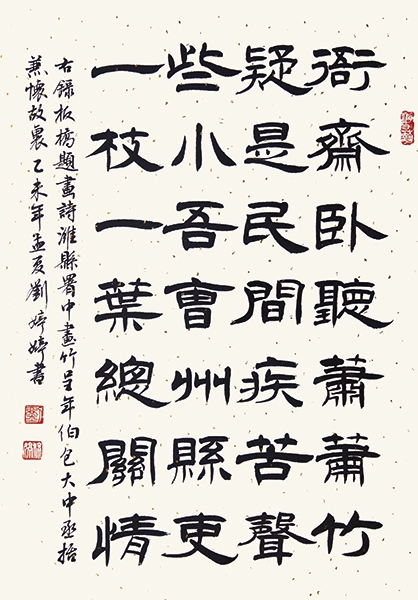 衙齋卧聽蕭蕭竹
疑是民間疾苦聲
些小吾曹州縣吏
一枝一葉總關情
右錄板橋題畫詩濰縣署中畫竹呈年伯包大中丞括
兼懷故裏乙未年孟夏劉婷婷書